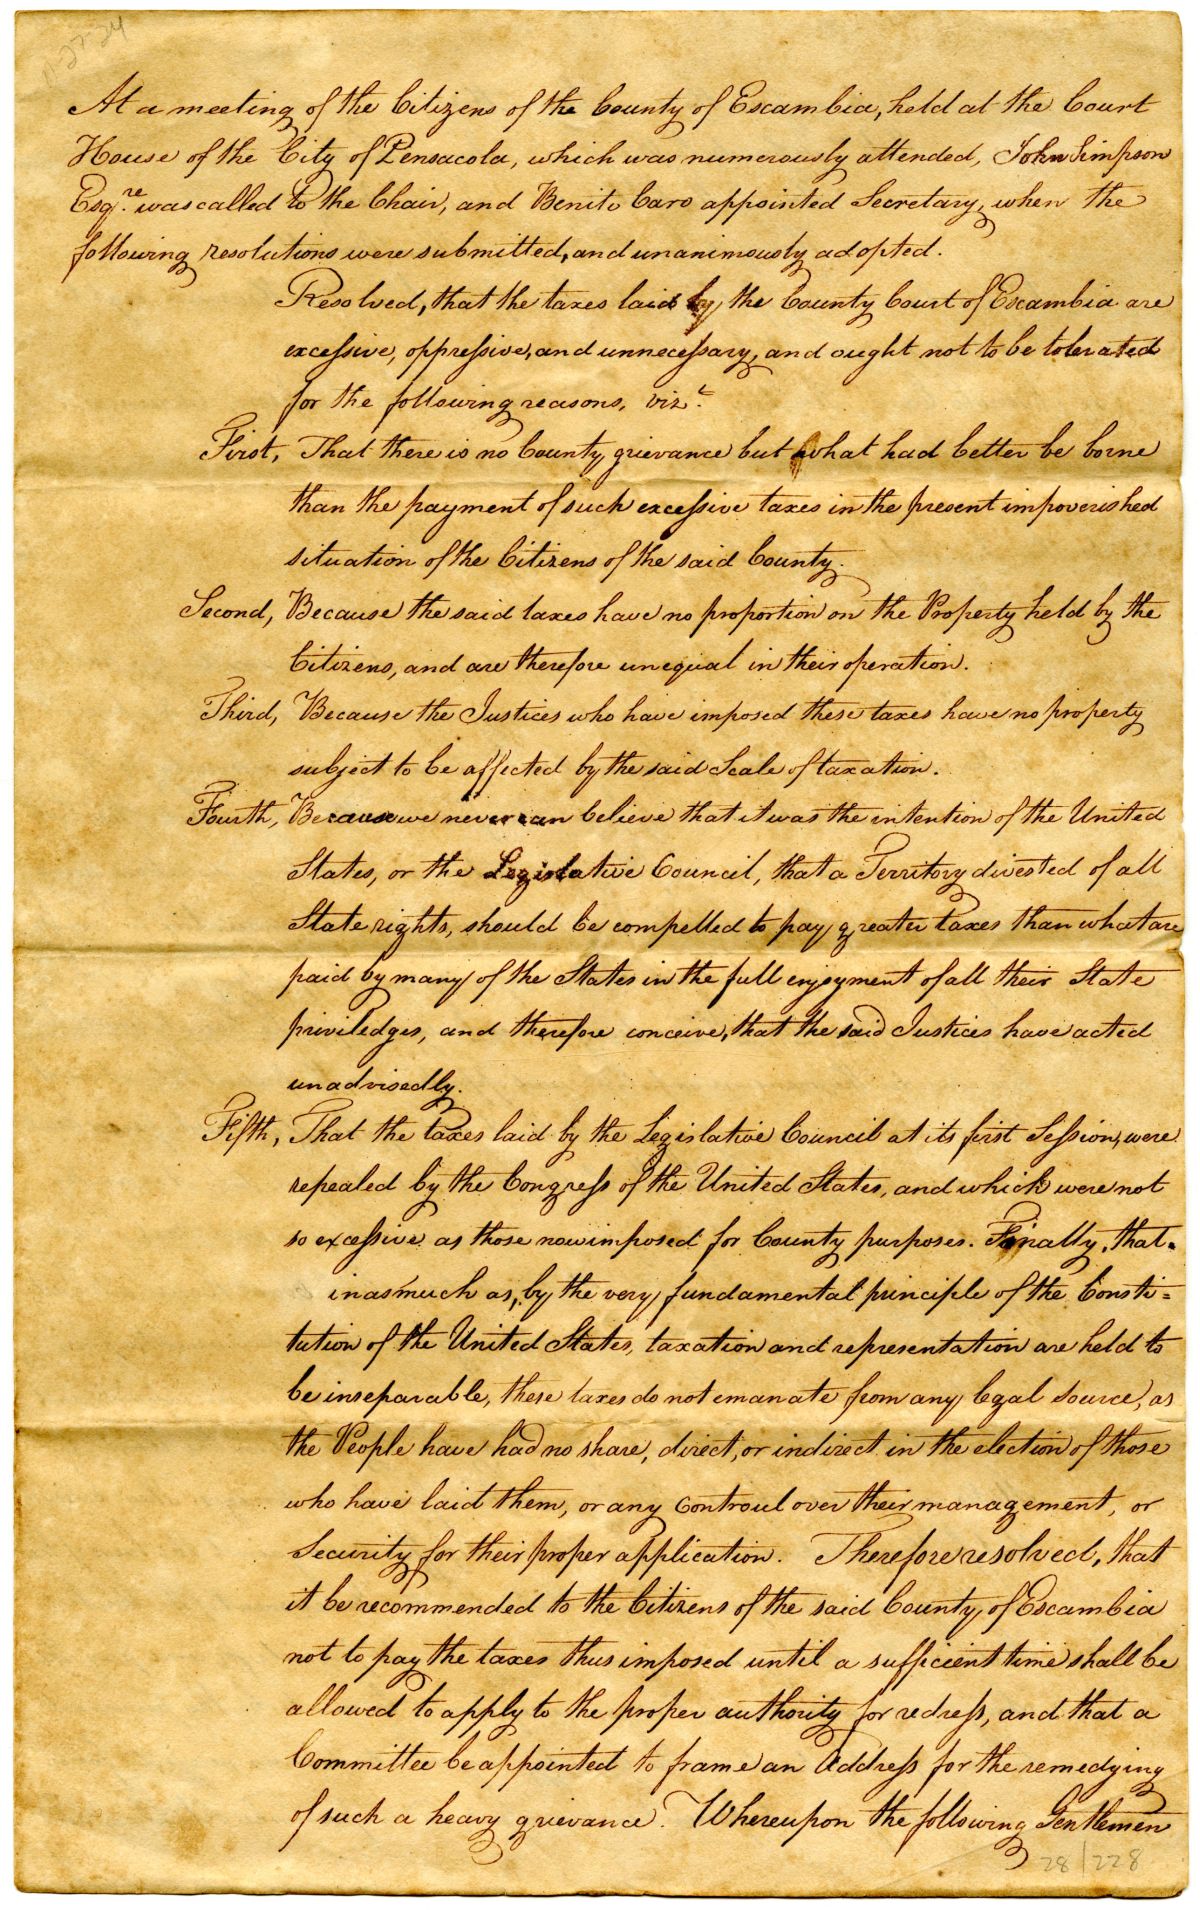 11-27-24
At a meeting of the Citizens of the County of Escambia, held at the Court
House of the City of Pensacola, which was numerously attended, John Simpson
Esq.re was called to the Chair, and Benito Caro appointed Secretary, when the
following resolutions were submitted, and unanimously adopted.
Resolved, that the taxes laid by the County Court of Escambia are
excessive, oppressive, and unnecessary, and ought not to be tolerated
for the following reasons, vizt.
First, That there is no County grievance but what had better be borne
than the payment of such excessive taxes in the present impoverished
situation of the Citizens of the said County.
Second, Because the said taxes have no proportion on the Property held by the
Citizens, and are therefore unequal in their operation.
Third, Because the Justices who have imposed these taxes have no property
subject to be affected by the said Scale of taxation.
Fourth, Because we never can believe that it was the intention of the United
States, or the Legislative Council, that a Territory divested of all
State rights, should be compelled to pay greater taxes than what are
paid by many of the States in the full enjoyment of all their State
priviledges, and therefore conceive, that the said Justices have acted
unadvisedly.
Fifth, That the taxes laid by the Legislative Council at its first Session, were
repealed by the Congress of the United States, and which were not
so excessive as those now imposed for County purposes. Finally, that
inasmuch as, by the very fundamental principle of the Consti=
tution of the United States, taxation and representation are held to
be inseparable, these taxes do not emanate from any legal source, as
the People have had no share, direct, or indirect in the election of those
who have laid them, or any controul over their management, or
Security for their proper application. Therefore resolved, that
it be recommended to the Citizens of the said County of Escambia
not to pay the taxes thus imposed until a sufficient time shall be
allowed to apply to the proper authority for redress, and that a
Committee be appointed to frame an Address for the remedying
of such a heavy grievance. Whereupon the following Gentlemen
28/228